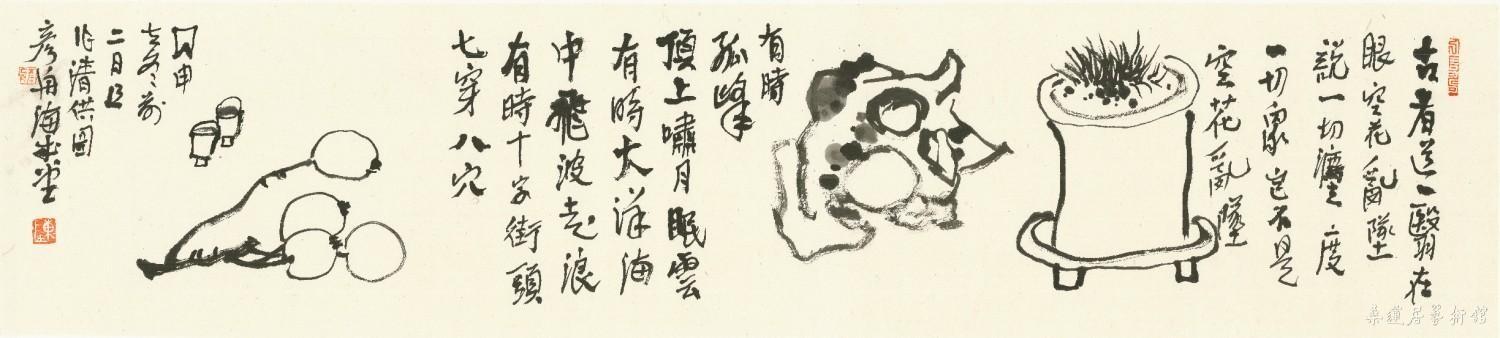 古者道一翳在
眼空花亂墜
說一切灋度
一切眾豈不是
空花亂墜
有時
孤峰
頂上嘯月眠雲
有時大洋海
中飛波走浪
有時十字街頭
七穿八穴
甲申
立冬前
二日
作清供圖
彥舟海
桑蓮居藝術館